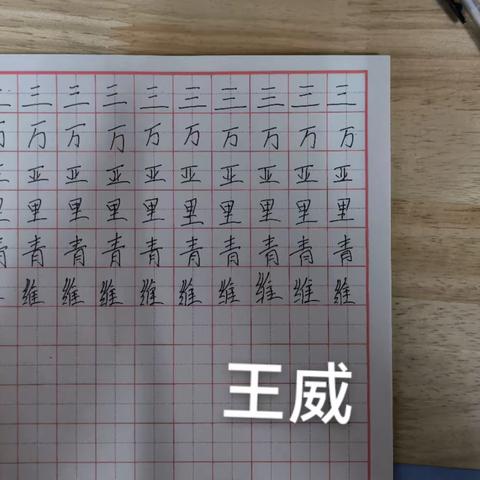 三 三 三 三 三 三 三 三 三 三
万 万 万 万 万 万 万 万 万 万
亚 亚 亚 亚 亚 亚 亚 亚 亚 亚
里 里 里 里 里 里 里 里 里 里
青 青 青 青 青 青 青 青 青 青
维 维 维 维 维 维 维 维 维
王威